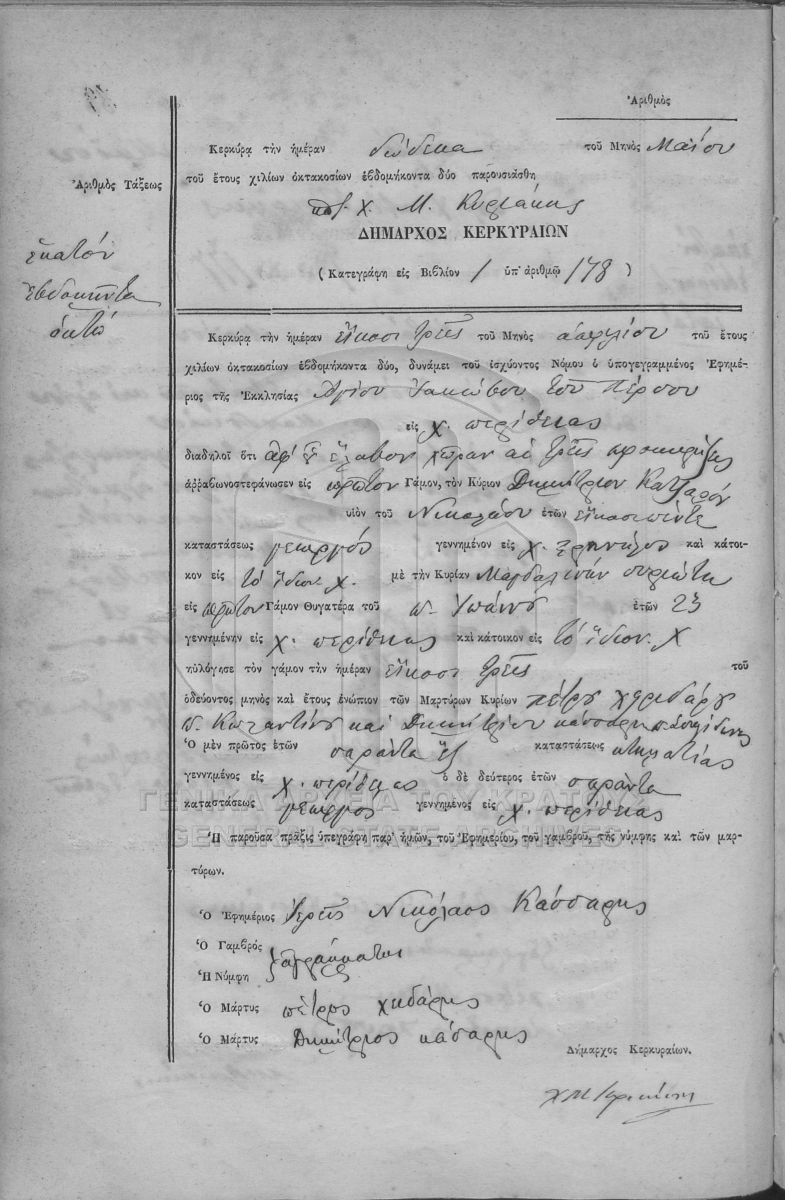 Ἀριθμὸς
Κερκύρᾳ τὴν ἡμέραν δώδεκα τοῦ Μηνὸς Μαΐου
τοῦ ἔτους χιλίων ὀκτακοσίων ἑβδομήκοντα δύο παρουσιάσθη
Χ. Μ. Κυριάκης
ΔΗΜΑΡΧΟΣ ΚΕΡΚΥΡΑΙΩΝ
(Κατεγράφη εἰς Βιβλίον 1 ὑπ' ἀριθμῷ 178)
Ἀριθμὸς Τάξεως
Ἑκατόν
ἑβδομῆντα
ὀκτώ
Κερκύρᾳ τὴν ἡμέραν εἴκοσι τρεῖς τοῦ Μηνὸς ἀπριλίου τοῦ ἔτους
χιλίων ὀκτακοσίων ἑβδομήκοντα δύο, δυνάμει τοῦ ἰσχύοντος Νόμου ὁ ὑπογεγραμμένος Ἐφημέ-
ριος τῆς Ἐκκλησίας Ἁγίου Ἰακώβου τοῦ Πέρσου
εἰς χ. περίθειας
διαδηλοῖ ὅτι ἀφ' οὗ ἔλαβον χώραν αἱ τρεῖς προκηρύξεις
ἀρραβωνοστεφάνωσεν εἰς πρῶτον Γάμον, τὸν Κύριον Δημήτριον Κατζαρόν
υἱὸν τοῦ Νικολάου ἐτῶν εἴκοσι πέντε
καταστάσεως γεωργός γεννημένον εἰς χ. καὶ κάτοι-
κον εἰς τὸ ἴδιον χ. μὲ τὴν Κυρίαν Μαγδαλινήν
εἰς πρῶτον Γάμον Θυγατέρα τοῦ π. Ἰωάννου ἐτῶν 23
γεννημένην εἰς χ. περίθειας καὶ κάτοικον εἰς τὸ ἴδιον. χ
ηὐλόγησε τὸν γάμον τὴν ἡμέραν εἴκοσι τρεῖς τοῦ
ὁδεύοντος μηνὸς καὶ ἔτους ἐνώπιον τῶν Μαρτύρων Κυρίων πέτρου
π. Κωσταντίνου καὶ Δημητρίου κάσσαρη π. Σπυρίδωνος
Ὁ μὲν πρῶτος ἐτῶν σαράντα ἕξ καταστάσεως κτηματίας
γεννημένος εἰς χ. περίθειας ὁ δὲ δεύτερος ἐτῶν σαράντα
καταστάσεως γεωργος γεννημένος εἰς χ. περίθειας
ΓΕΝΙΚΑ ΑΡΧΕΙΑ ΤΟΥ ΚΡΑΤΟΥΣ
GENERAL STATE ARCHIVES
Ἡ παροῦσα πρᾶξις ὑπεγράφη παρ' ἡμῶν, τοῦ Ἐφημερίου, τοῦ γαμβροῦ, τῆς νύμφης καὶ τῶν μαρ-
τύρων.
Ὁ Ἐφημέριος Ἱερεὺς Νικόλαος Κάσσαρης
Ὁ Γαμβρός
ἀγράμματοι
Ἡ Νύμφη
Ὁ Μάρτυς πέτρος χηδάρης
Ὁ Μάρτυς Δημήτριος κάσαρης
Δήμαρχος Κερκυραίων.
Χ Μ Κυριάκης